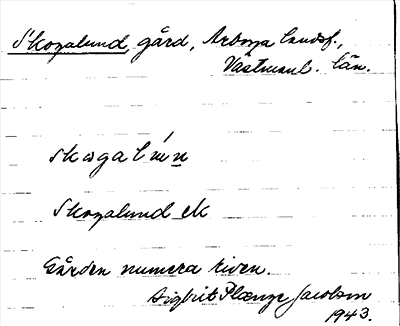 Skogalund, gård, Arboga landsf.,
Västmanl. län.
Skogalund ek
Gården numera riven.
Sigbrit Plænge Jacobson
1943.